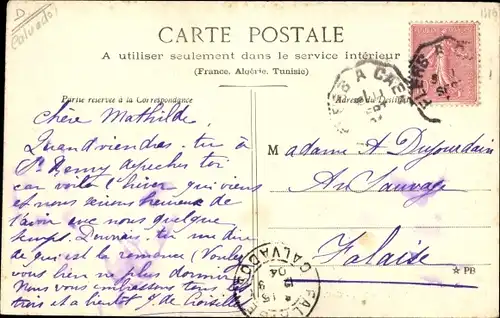 D
Calvados
CARTE POSTALE
A utiliser seulement dans le service intérieur
(France, Algérie, Tunisie)
Partie réservée à la Correspondance
Adresse du
FLERS A CAEN
Chère Mathilde,
Quand viendras-tu à
St Remy dépecher toi
car voilà l'hiver qui vient
et nous serions heureux de
t'avoir avec nous quelque
temps. Pourrais-tu me dire
de qui est la romance (Voulez
vous bien ne plus dormir)
Nous vous embrassons tous
trois et a bientot
M
adame A Dujourdain
Au Sauvage
Falaise
FALAISE
CALVADOS
04
☆ PB